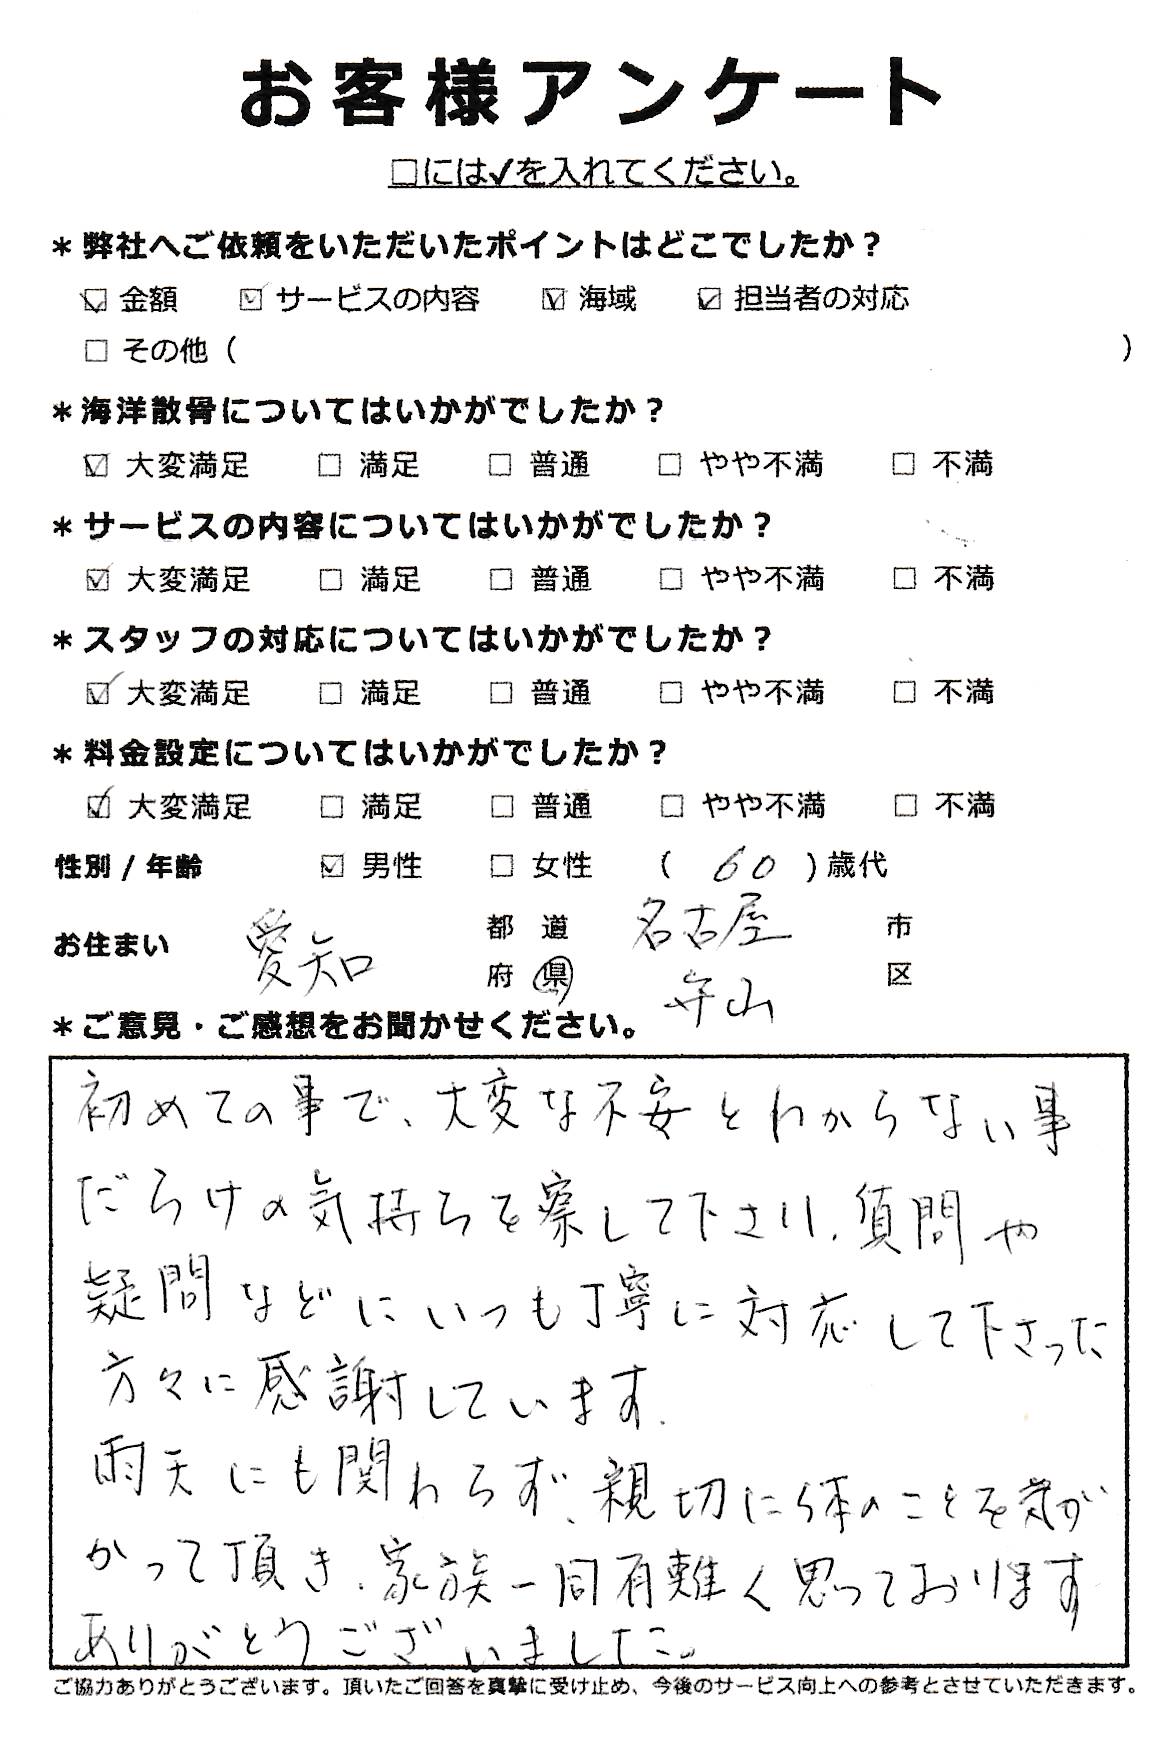 お客様アンケート
□には✓を入れてください。
＊弊社へご依頼をいただいたポイントはどこでしたか？
☑ 金額 ☑ サービスの内容 ☑ 海域 ☑ 担当者の対応
□ その他（ ）
＊海洋散骨についてはいかがでしたか？
☑ 大変満足 □ 満足 □ 普通 □ やや不満 □ 不満
＊サービスの内容についてはいかがでしたか？
☑ 大変満足 □ 満足 □ 普通 □ やや不満 □ 不満
＊スタッフの対応についてはいかがでしたか？
☑ 大変満足 □ 満足 □ 普通 □ やや不満 □ 不満
＊料金設定についてはいかがでしたか？
☑ 大変満足 □ 満足 □ 普通 □ やや不満 □ 不満
性別 / 年齢 ☑ 男性 □ 女性 （ 60 ）歳代
お住まい 愛知 都 道 府 県 名古屋 市 守山 区
＊ご意見・ご感想をお聞かせください。
初めての事で、大変な不安とわからない事
だらけの気持ちを察して下さり、質問や
疑問などにいつも丁寧に対応して下さった
方々に感謝しています。
雨天にも関わらず、親切に体のことを気が
かって頂き、家族一同有難く思っております
ありがとうございました。
ご協力ありがとうございます。頂いたご回答を真摯に受け止め、今後のサービス向上への参考とさせていただきます。